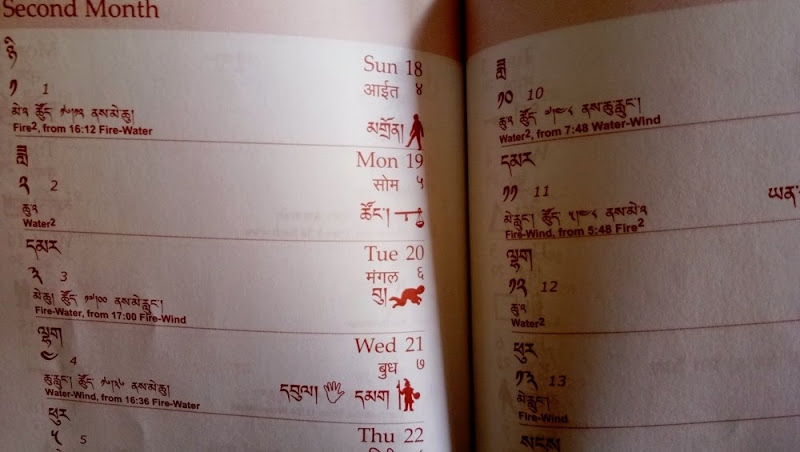 Second Month
ཉི
Sun 18
༡ 1
आईत ४
མེ༢ ཆོུད ༡༦།༡༢ ནས་མེ་ཆུ།
Fire2, from 16:12 Fire-Water
མགྲོན།
ཟླ
Mon 19
༢ 2
सोम ५
ཆུ༢
Water2
ཚོང་།
དམར
Tue 20
༣ 3
मंगल ६
བུ།
མེ་ཆུ། ཆོུད ༡༧།༠༠ ནས་མེ་རླུང།
Fire-Water, from 17:00 Fire-Wind
ལྷག
Wed 21
༤ 4
बुध ७
ཆུ་རླུང། ཆོུད ༡༦།༣༦ ནས་མེ་ཆུ།
Water-Wind, from 16:36 Fire-Water
དབུལ། དམག
ཕུར
Thu 22
༥ 5
ཟླ
༡༠ 10
ཆུ༢ ཆོུད ༧།༤༨ ནས་ཆུ་རླུང།
Water2, from 7:48 Water-Wind
དམར
༡༡ 11
ཡན་
མེ་རླུང། ཆོུད ༥།༤༨ ནས་མེ༢
Fire-Wind, from 5:48 Fire2
ལྷག
༡༢ 12
ཆུ༢
Water2
ཕུར
༡༣ 13
མེ་རླུང།
Fire-Wind